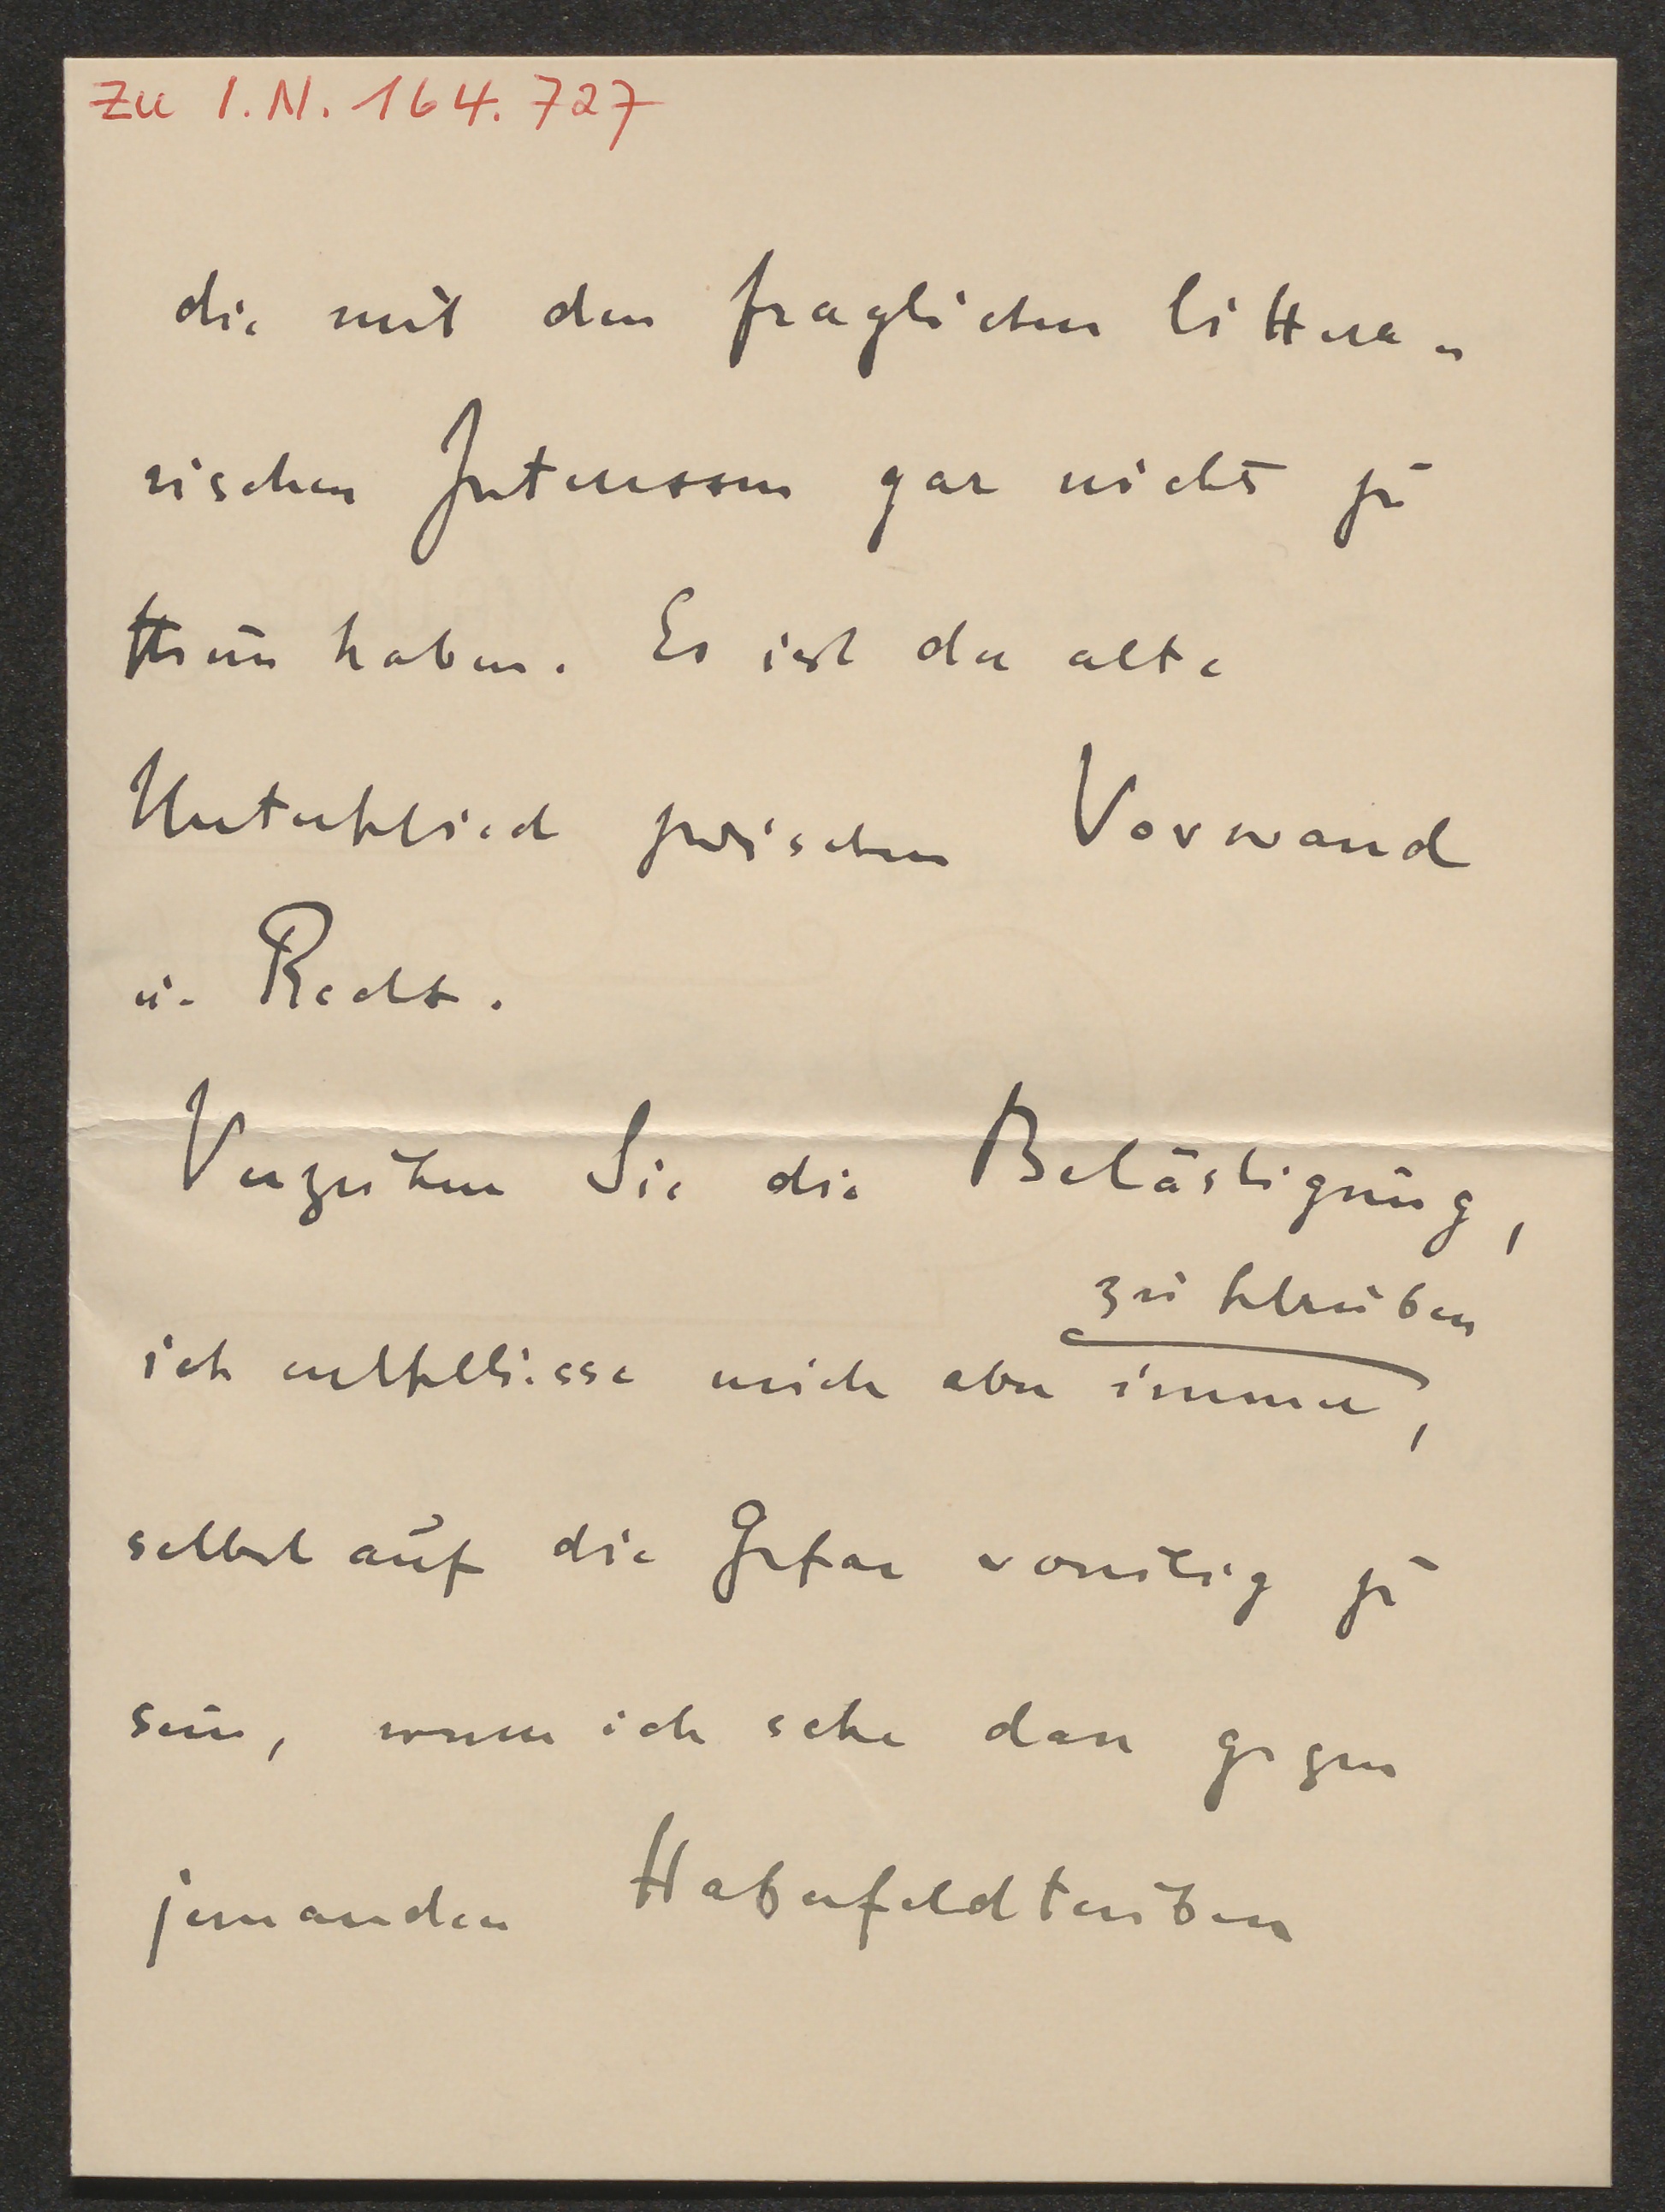 Zu I.N. 164.727
die mit den fraglichen littera-
rischen Interessen gar nichts zu
thun haben. Es ist der alte
Unterschied zwischen Vorwand
u. Recht.
Verzeihen Sie die Belästigung,
zu schreiben
ich entschliesse mich aber immer,
selbst auf die Gefar voreilig zu
sein, wenn ich sehe dass gegen
jemanden Haberfeldtreiben